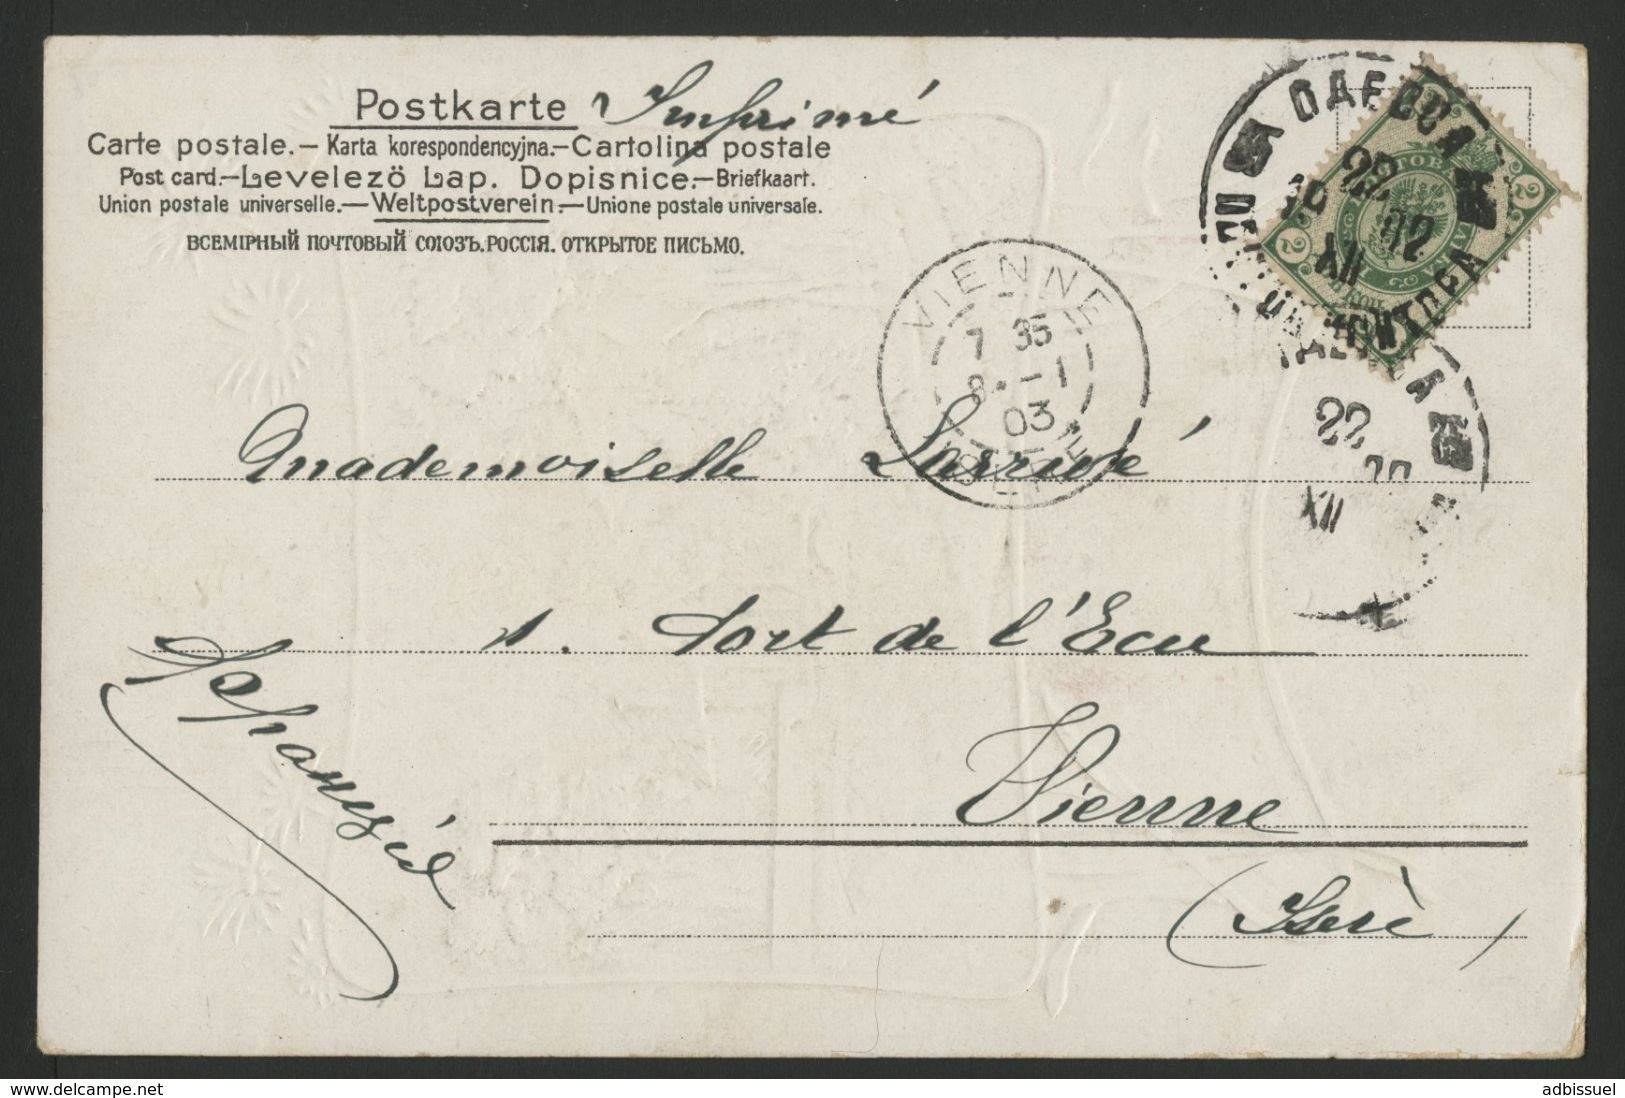 Postkarte Imprimé
Carte postale.— Karta korespondencyjna.—Cartolina postale
Post card.—Levelezö Lap. Dopisnice.—Briefkaart.
Union postale universelle.—Weltpostverein.—Unione postale universale.
ВСЕМІРНЫЙ ПОЧТОВЫЙ СОЮЗЪ.РОССІЯ. ОТКРЫТОЕ ПИСЬМО.
ОДЕССА
22
XII
02
2
VIENNE
7 35
8 - 1
03
ISERE
22
XII
Mademoiselle
1. Port de l'Ecu
Vienne
(Isère)
adbissuel
www.delcampe.net